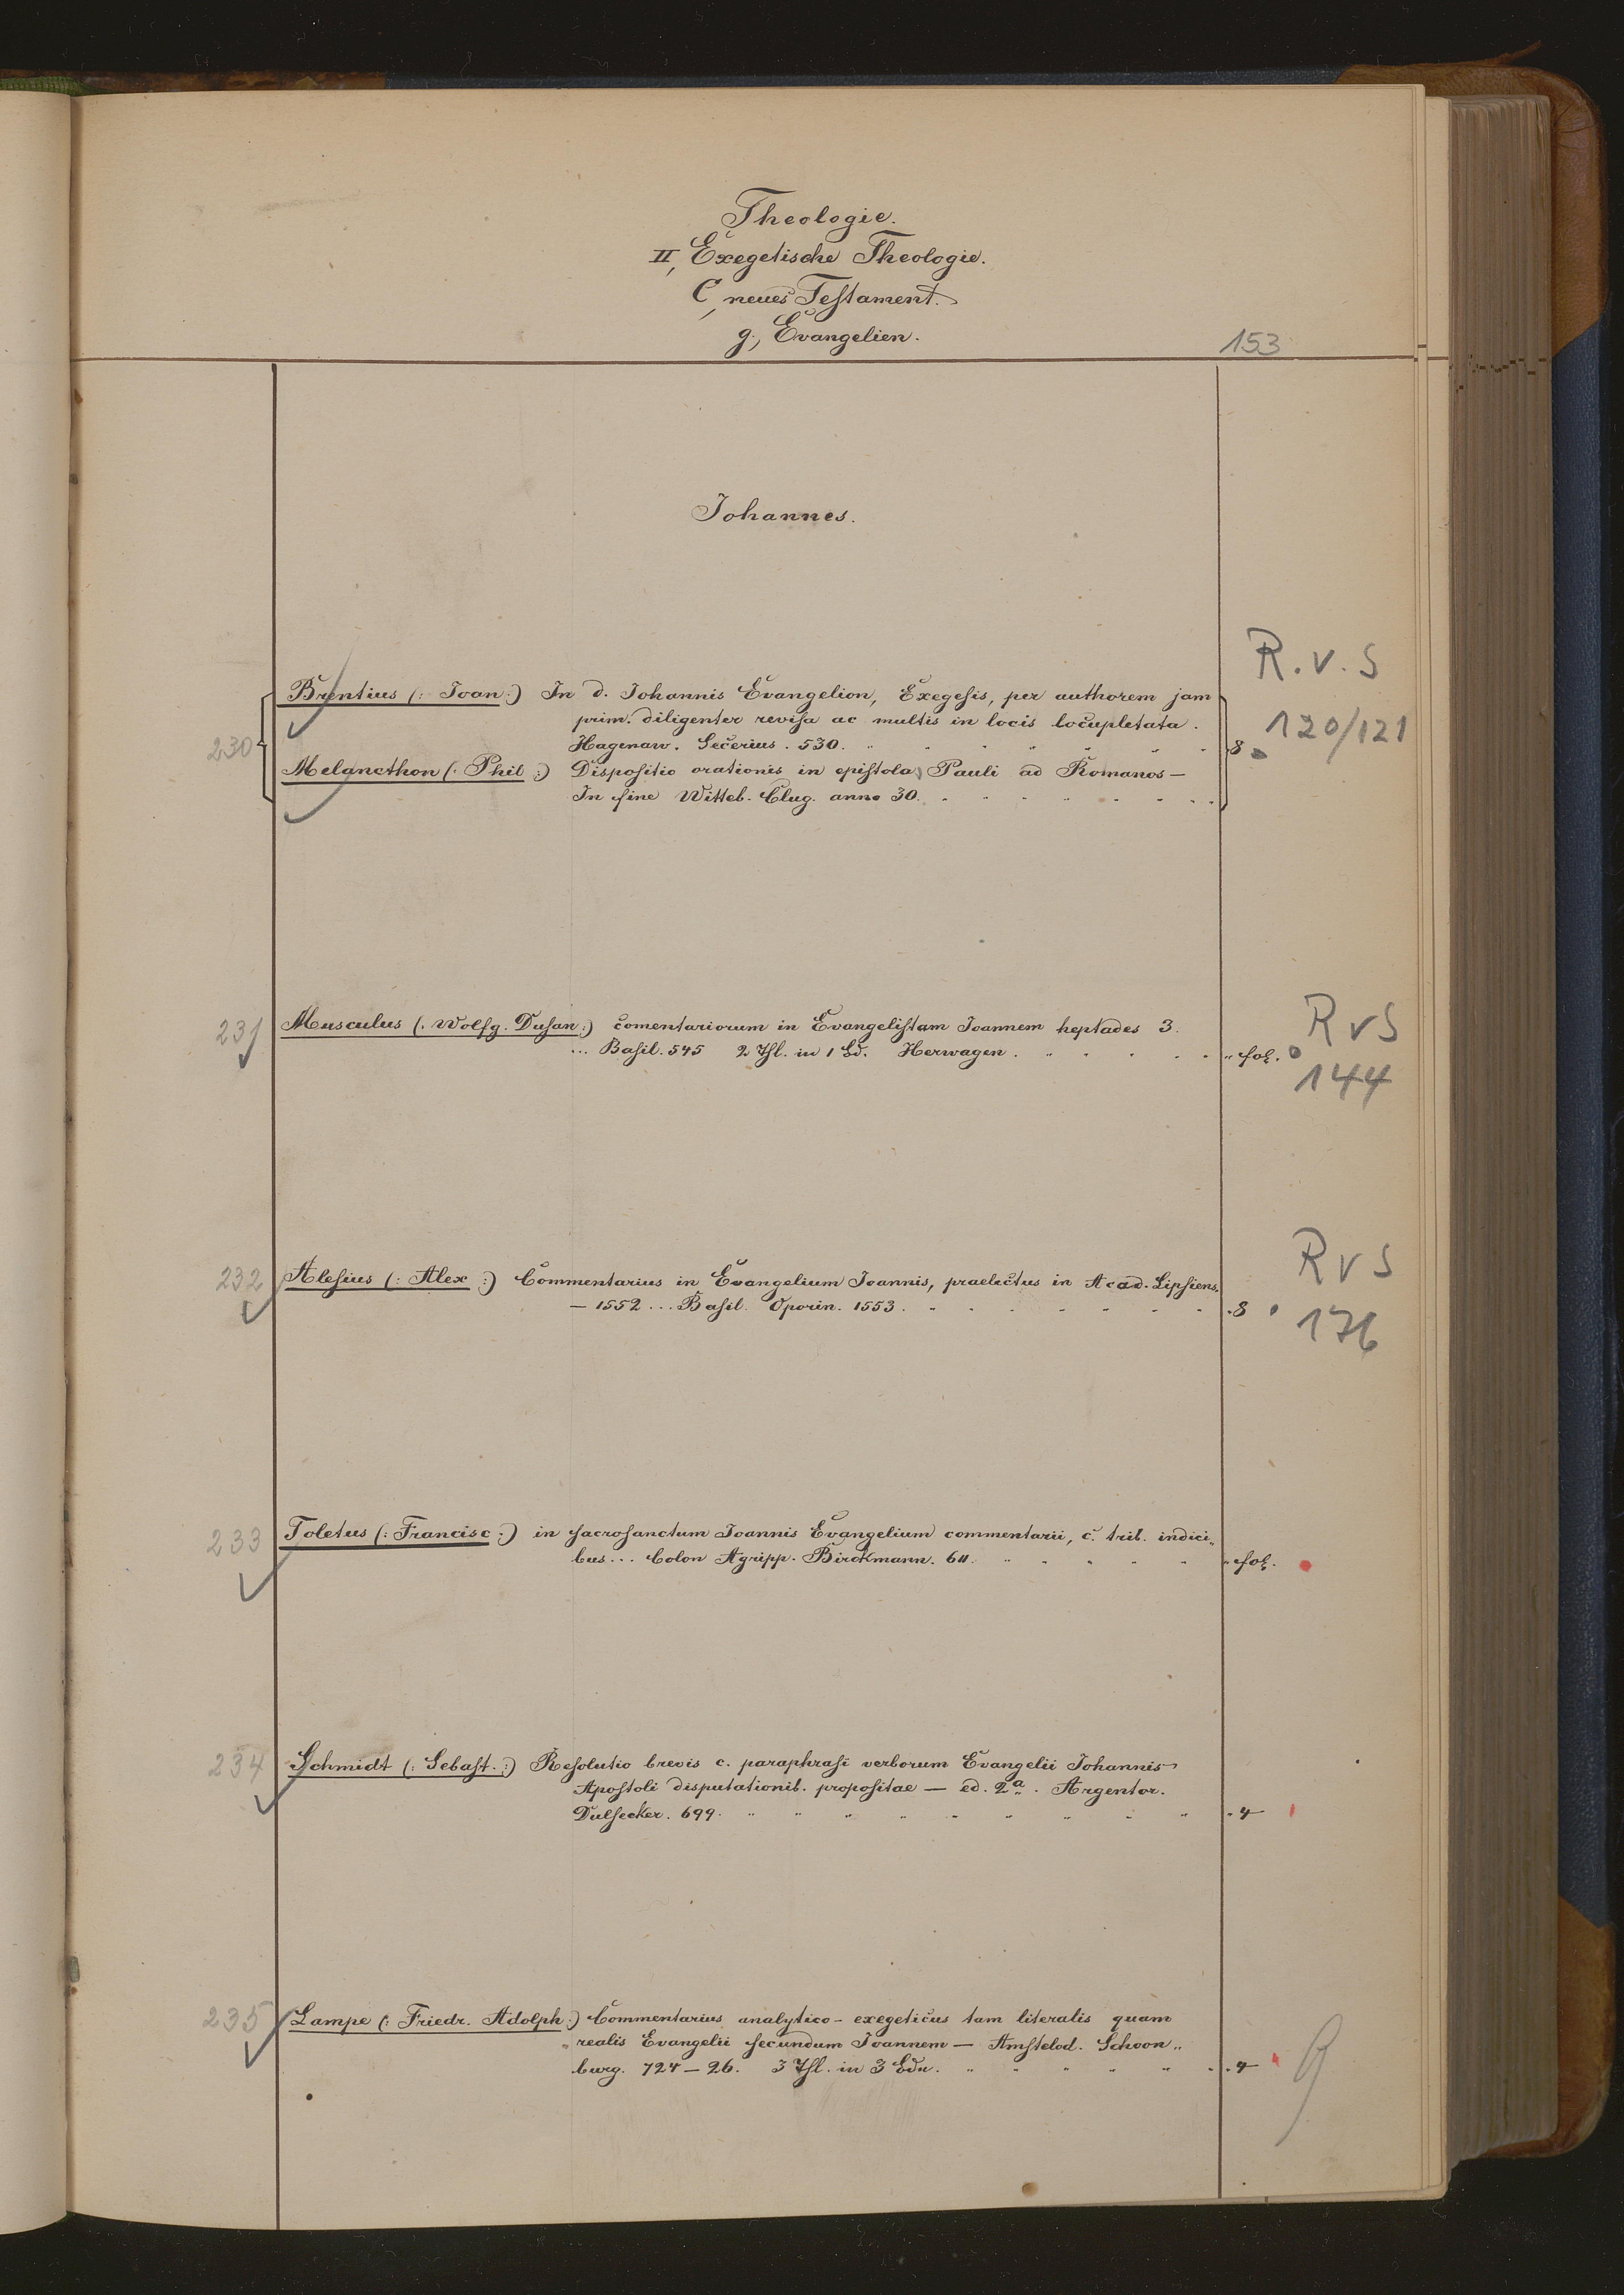 Theologie.
II, Exegetische Theologie.
C, neues Testament.
g., Evangelien.
153
Johannes.
R. v. S
Brentius (: Joan :) In d. Johannis Evangelion, Exegesis, per authorem jam
prim. diligenter revisa ac multis in locis locupletata.
120/121
230
Hagenaw. Secerius. 530. 8
Melancthon (: Phil :) Dispositio orationis in epistola Pauli ad Romanos —
In fine Witteb. Clug. anno 30.
R v S
231 Musculus (: Wolfg. Dusan :) comentariorum in Evangelistam Joannem heptades 3.
... Basil. 545 2 Thl. in 1 Bd. Herwagen. fol.
144
R v S
232 Alesius (: Alex :) Commentarius in Evangelium Joannis, praelectus in Acad. Lipsiens.
— 1552 ... Basil. Oporin. 1553. 8
176
233 Toletus (: Francisc :) in sacrosanctum Joannis Evangelium commentarii, c. trib. indici„
bus ... Colon Agripp. Birckmann. 611. fol.
234 Schmidt (: Sebast. :) Resolutio brevis c. paraphrasi verborum Evangelii Johannis
Apostoli disputationib. propositae — ed. 2a. Argentor.
Dulsecker. 699. 4
235 Lampe (: Friedr. Adolph :) Commentarius analytico-exegeticus tam literalis quam
realis Evangelii secundum Joannem — Amstelod. Schoon„
burg. 724–26. 3 Thl. in 3 Bdn. 4